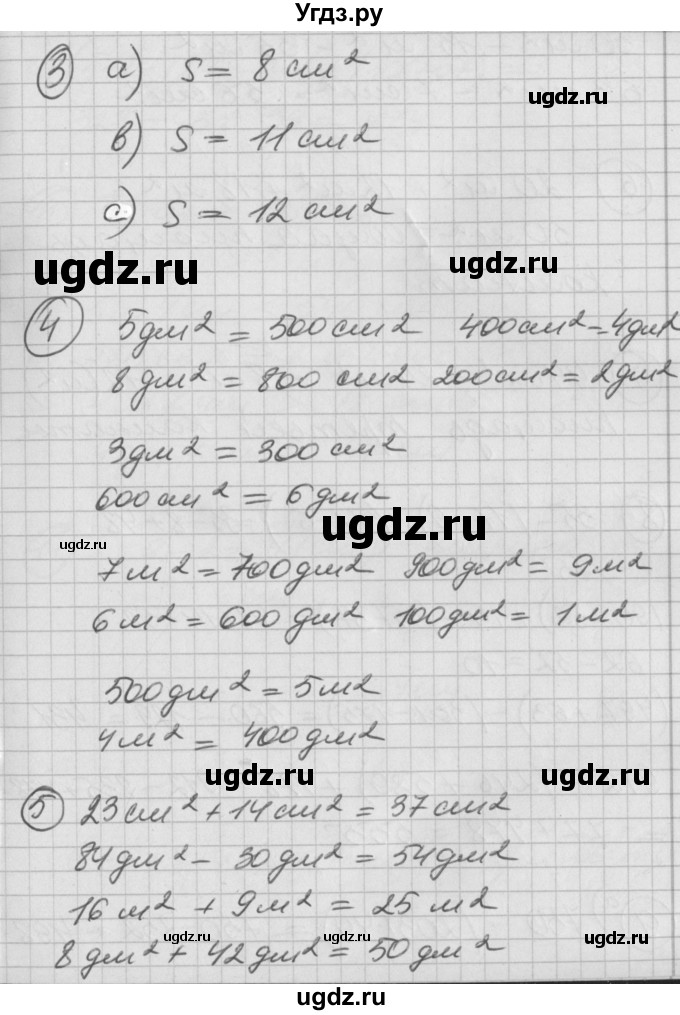 Угдз.ру
③ а) S = 8 см²
ugdz.ru
в) S = 11 см²
с) S = 12 см²
ugdz.ru ugdz.ru
④ 5дм² = 500см² 400см² = 4дм²
8дм² = 800 см² 200см² = 2дм²
3дм² = 300см²
600см² = 6дм²
ugdz.ru ugdz.ru
7м² = 700дм² 900дм² = 9м²
6м² = 600дм² 100дм² = 1м²
500дм² = 5м²
4м² = 400дм²
ugdz.ru ugdz.ru
⑤ 23см² + 14см² = 37см²
84дм² - 30дм² = 54дм²
16м² + 9м² = 25м²
ugdz.ru ugdz.ru
8дм² + 42дм² = 50дм²
ugdz.ru